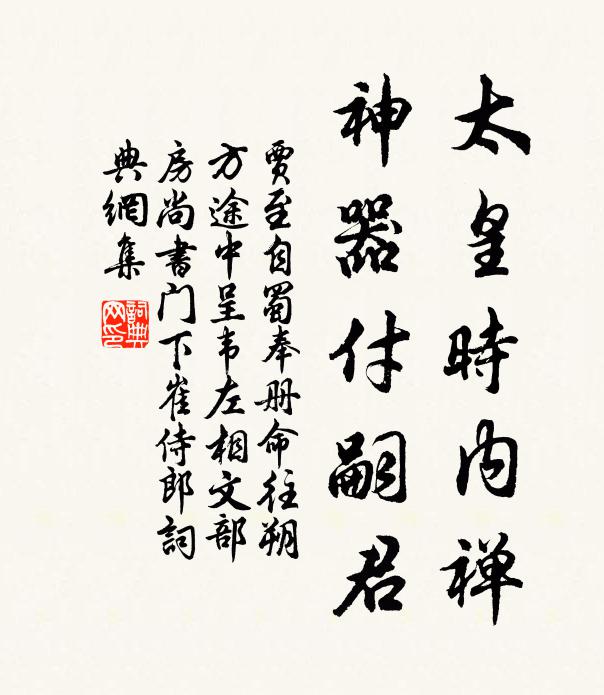 太皇時内禅
神器付嗣君
賈至自蜀奉册命往朔
方途中呈韦左相文部
房尚書门下崔侍郎詞
典網集
詞典网印